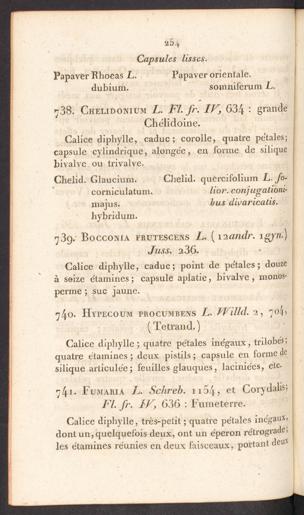 254
Capsules lisses.
Papaver Rhoeas L. Papaver orientale.
dubium. somniferum L.
738. CHELIDONIUM L. Fl. fr. IV, 634 : grande
Chélidoine.
Calice diphylle, caduc ; corolle, quatre pétales;
capsule cylindrique, alongée, en forme de silique
bivalve ou trivalve.
Chelid. Glaucium. Chelid. quercifolium L. fo-
corniculatum. lior. conjugationi-
majus. bus divaricatis.
hybridum.
739. BOCCONIA FRUTESCENS L. (12andr. 1gyn.)
Juss. 236.
Calice diphylle, caduc ; point de pétales ; douze
à seize étamines ; capsule aplatie, bivalve, monos-
perme ; suc jaune.
740. HYPECOUM PROCUMBENS L. Willd. 2, 704,
(Tetrand.)
Calice diphylle ; quatre pétales inégaux, trilobés;
quatre étamines ; deux pistils ; capsule en forme de
silique articulée ; feuilles glauques, laciniées, etc.
741. FUMARIA L. Schreb. 1154, et Corydalis;
Fl. fr. IV, 636 : Fumeterre.
Calice diphylle, très-petit ; quatre pétales inégaux,
dont un, quelquefois deux, ont un éperon rétrograde;
les étamines réunies en deux faisceaux, portant deux